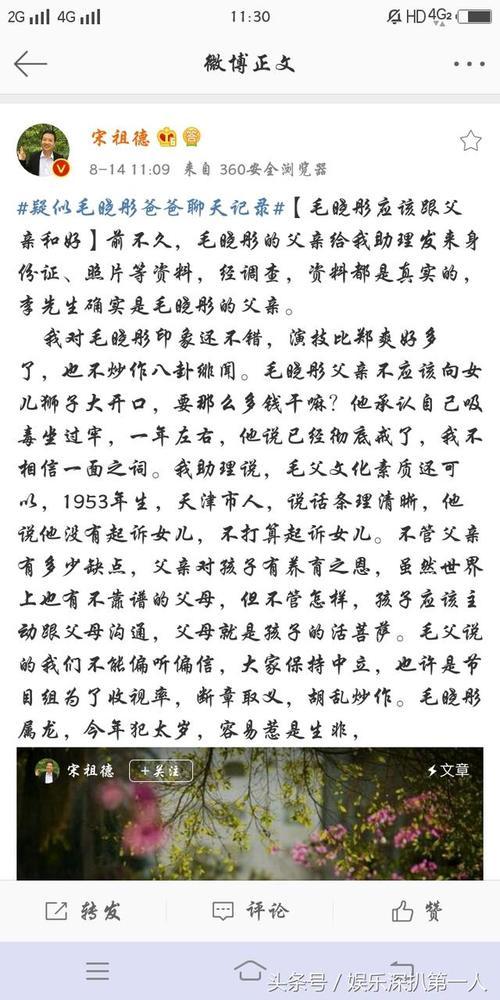 2G 4G 11:30 HD 4G2
微博正文
宋祖德
8-14 11:09 来自 360安全浏览器
#疑似毛晓彤爸爸聊天记录#【毛晓彤应该跟父
亲和好】前不久，毛晓彤的父亲给我助理发来身
份证、照片等资料，经调查，资料都是真实的，
李先生确实是毛晓彤的父亲。
我对毛晓彤印象还不错，演技比郑爽好多
了，也不炒作八卦绯闻。毛晓彤父亲不应该向女
儿狮子大开口，要那么多钱干嘛？他承认自己吸
毒坐过牢，一年左右，他说已经彻底戒了，我不
相信一面之词。我助理说，毛父文化素质还可
以，1953年生，天津市人，说话条理清晰，他
说他没有起诉女儿，不打算起诉女儿。不管父亲
有多少缺点，父亲对孩子有养育之恩，虽然世界
上也有不靠谱的父母，但不管怎样，孩子应该主
动跟父母沟通，父母就是孩子的活菩萨。毛父说
的我们不能偏听偏信，大家保持中立，也许是节
目组为了收视率，断章取义，胡乱炒作。毛晓彤
属龙，今年犯太岁，容易惹是生非，
宋祖德 +关注 文章
转发 评论 赞
头条号 / 娱乐深扒第一人